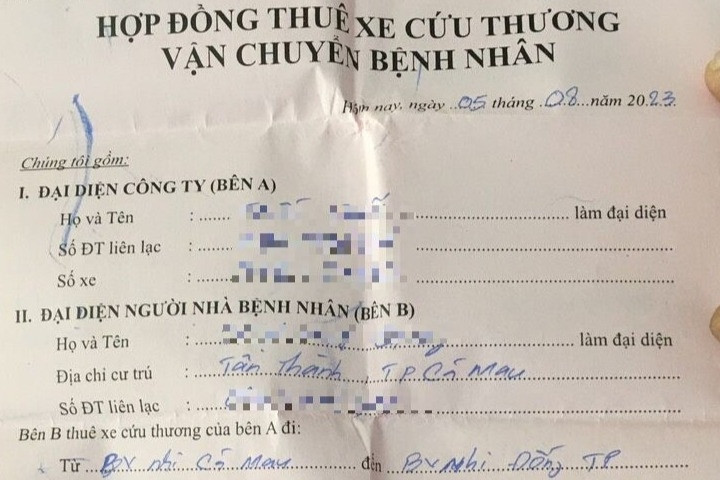 HỢP ĐỒNG THUÊ XE CỨU THƯƠNG
VẬN CHUYỂN BỆNH NHÂN
Hôm nay, ngày ..05 tháng .08...năm 20.23.
Chúng tôi gồm:
I. ĐẠI DIỆN CÔNG TY (BÊN A)
Họ và Tên : ...... làm đại diện
Số ĐT liên lạc : ......
Số xe : ......
II. ĐẠI DIỆN NGƯỜI NHÀ BỆNH NHÂN (BÊN B)
Họ và Tên : ...... làm đại diện
Địa chỉ cư trú : ...Tân Thành, TP Cà Mau
Số ĐT liên lạc : ......
Bên B thuê xe cứu thương của bên A đi:
Từ ...BV nhi Cà Mau... đến ...BV Nhi Đồng TP